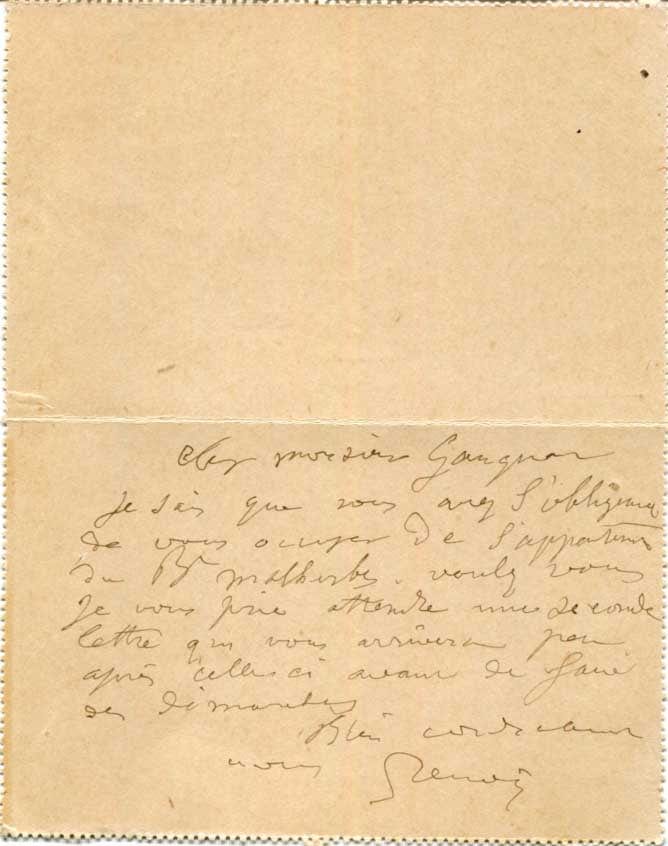 cher monsieur Gaugnar
Je sais que vous avez l'obligeance
de vous occuper de l'appartement
du Bd malherbes. voulez vous
Je vous prie attendre une seconde
lettre qui vous arrivera peu
après celle ci avant de faire
des démarches
Bien cordialement
vous Renoir